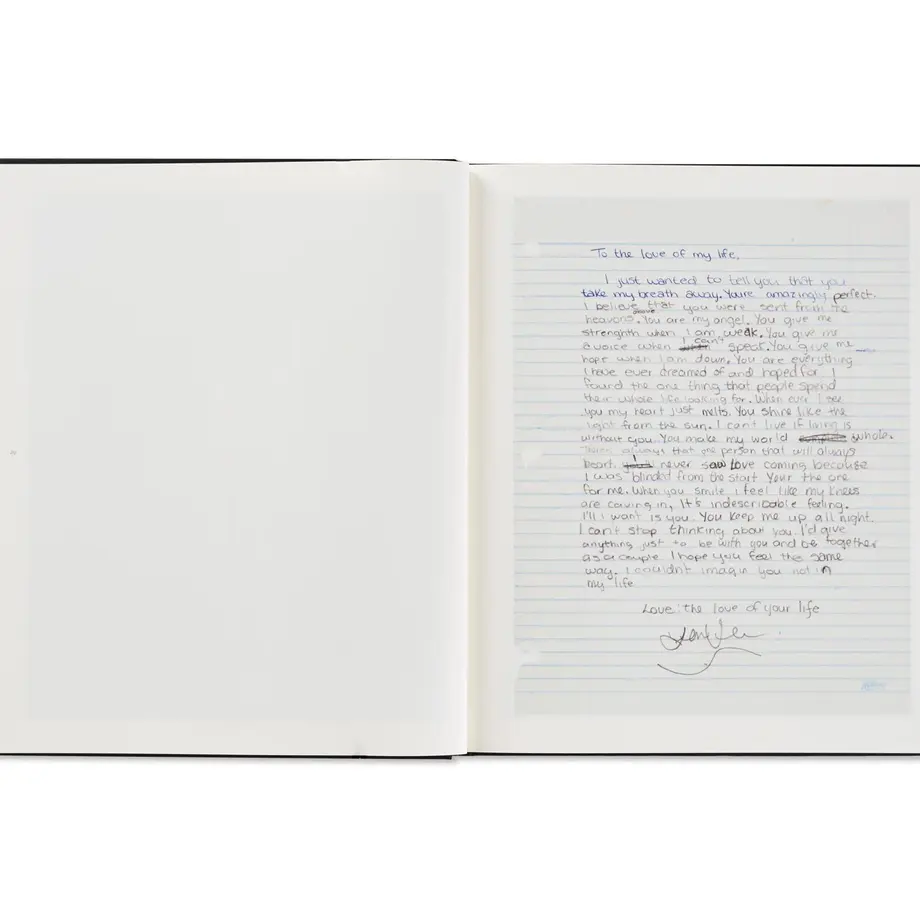 To the love of my life,
I just wanted to tell you that you
take my breath away. Youre amazingly perfect.
I believe that you were sent from the
heavens. You are my angel. You give me
strenghth when I am weak. You give me
a voice when I can't speak. You give me
hope when I am down. You are everything
I have ever dreamed of and hoped for I
found the one thing that people spend
their whole life looking for. When ever I see
you my heart just melts. You shine like the
light from the sun. I can't live if living is
without you. You make my world whole.
always that one person that will always
heart. I never saw love coming because
I was blinded from the start Your the one
for me. When you smile i feel like my knees
are caving in, It's indescribable feeling.
I'll I want is you. You keep me up all night.
I can't stop thinking about you. I'd give
anything just to be with you and be together
as a couple. I hope you feel the same
way. I couldn't imagin you not in
my life
Love: the love of your life